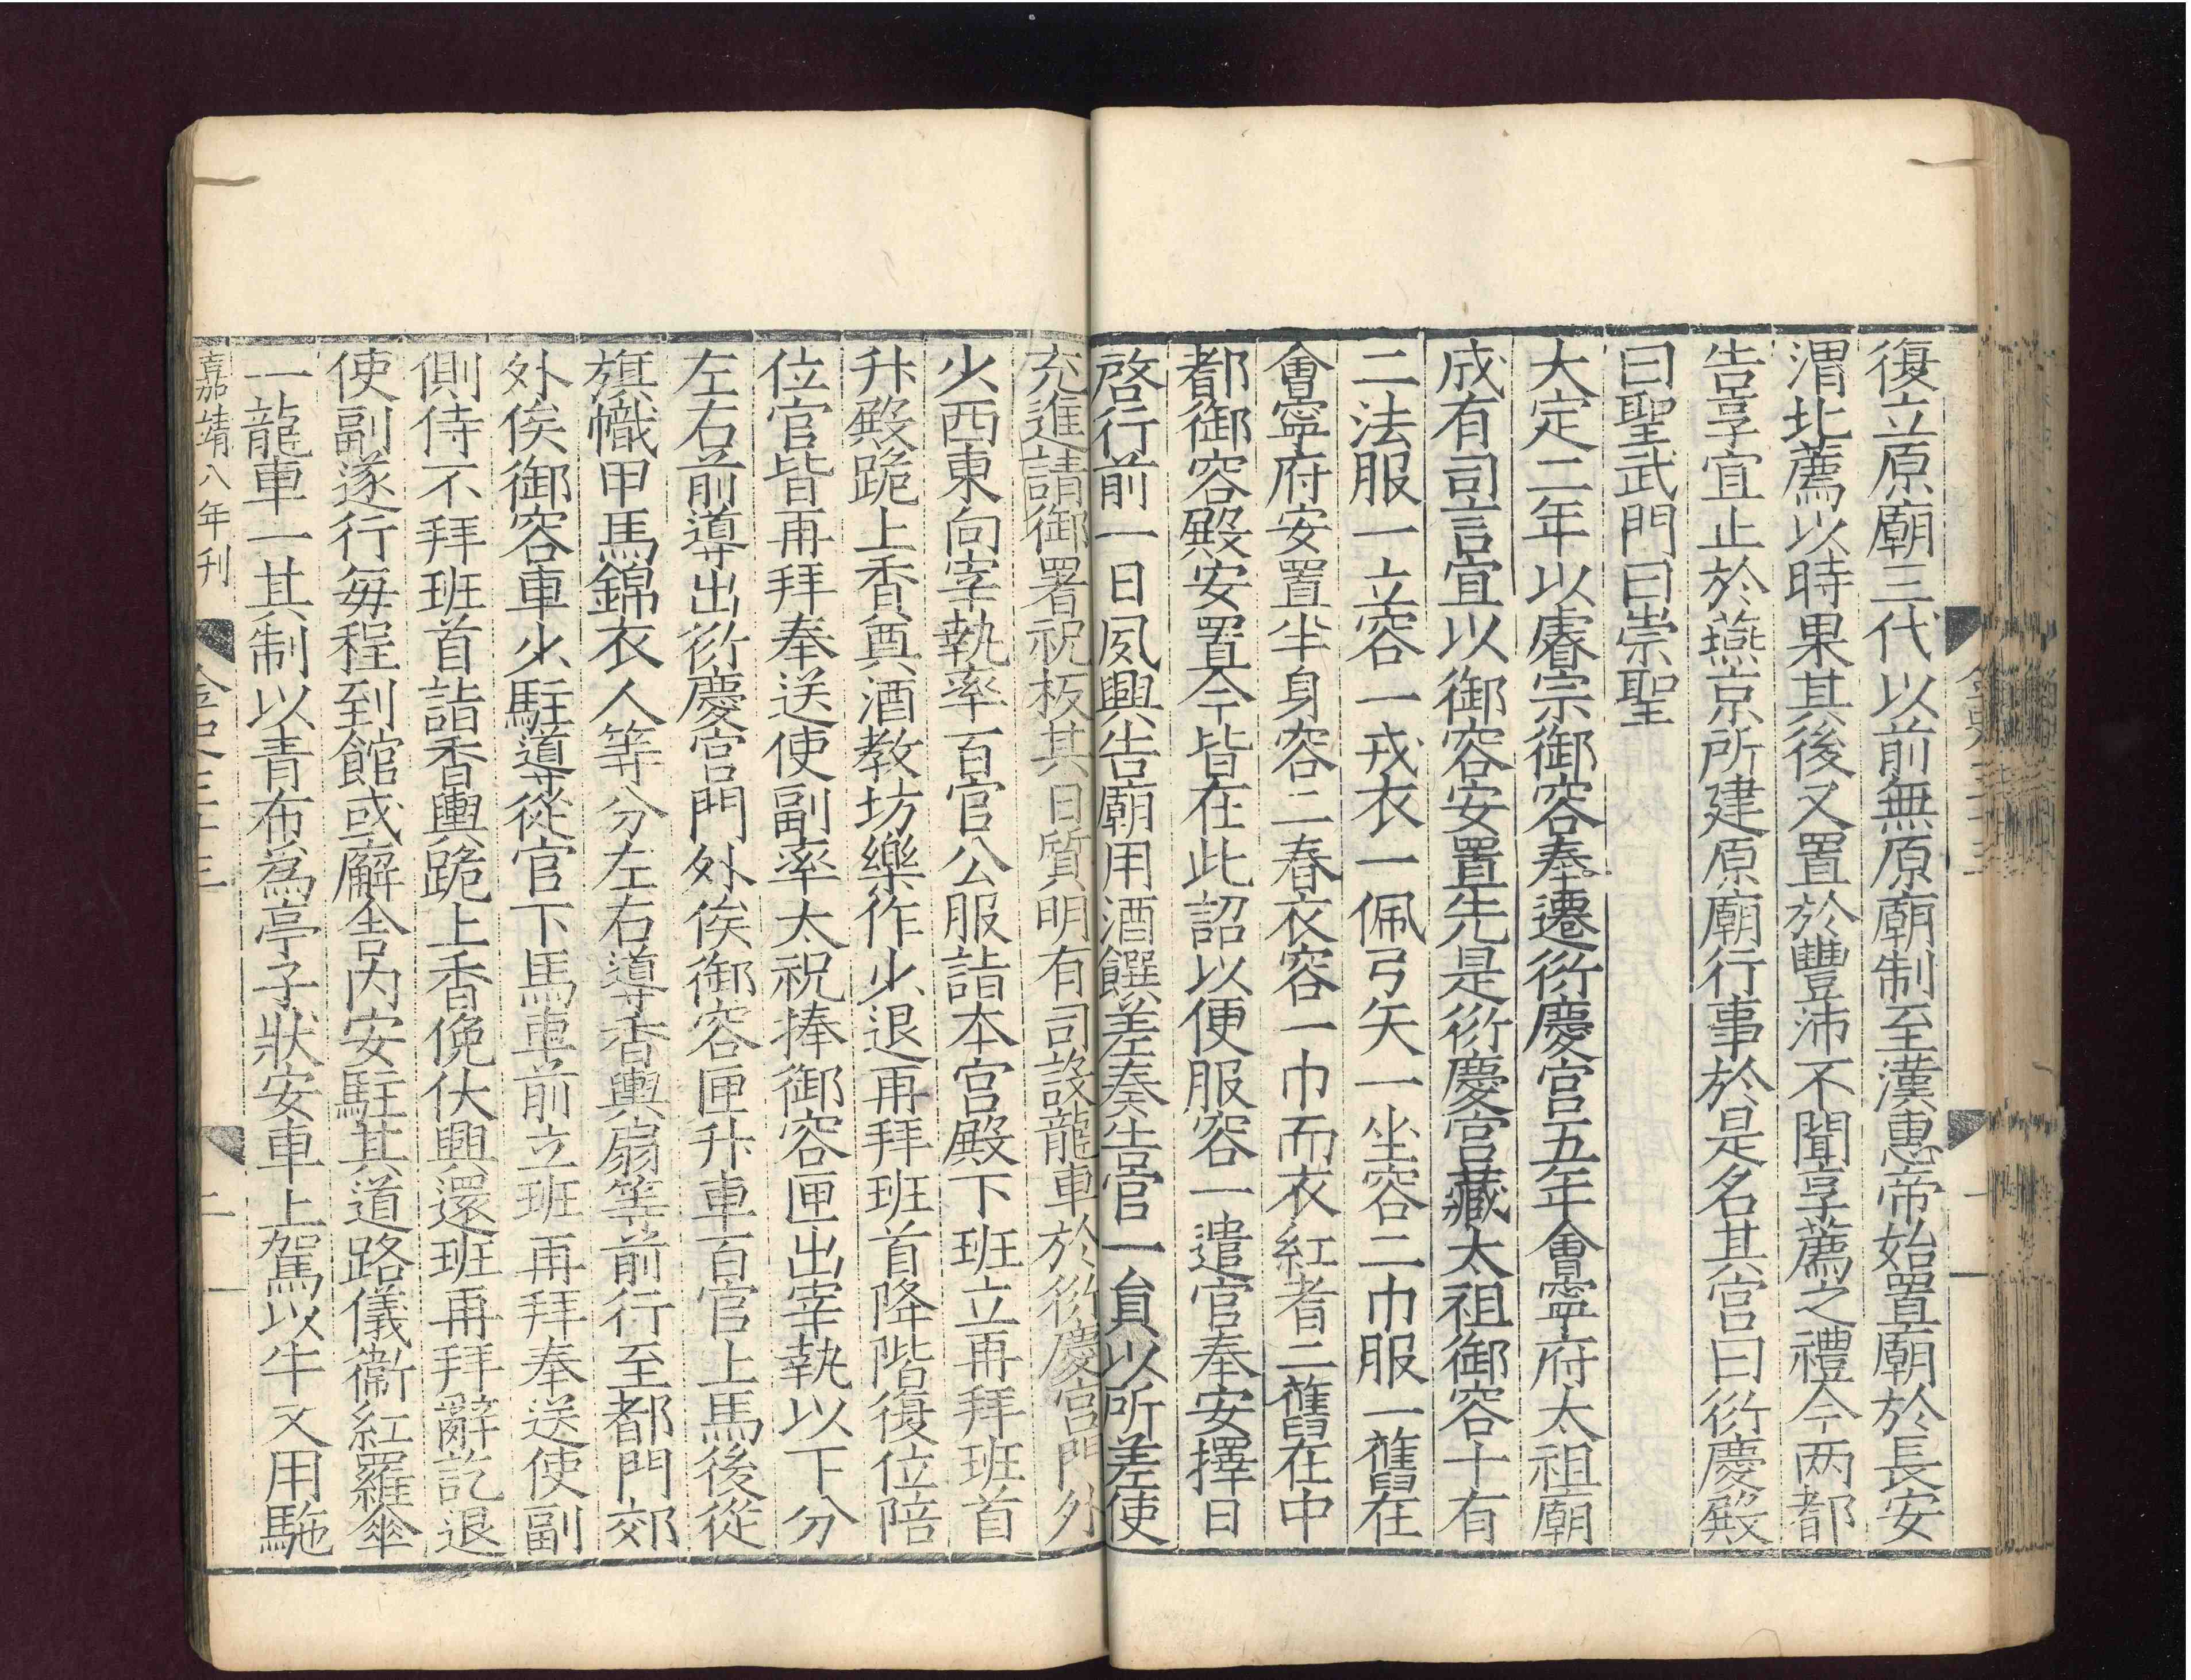 復立原廟三代以前無原廟制至漢惠帝始置廟於長安
渭北薦以時果其後又置於豐沛不聞享薦之禮今两都
告享宜止於燕京所建原廟行事於是名其宫曰衍慶殿
曰聖武門曰崇聖
大定二年以睿宗御容奉遷衍慶宫五年會寧府太祖廟
成有司言宜以御容安置先是衍慶宫藏太祖御容十有
二法服一立容一戎衣一佩弓矢一坐容二巾服一舊在
會寧府安置半身容二春衣容一巾而衣紅者二舊在中
都御容殿安置今皆在此詔以便服容一遣官奉安擇日
啓行前一日夙興告廟用酒饌差奏告官一貟以所差使
充進請御署祝板其日質明有司設龍車於衍慶宫門外
少西東向宰執率百官公服詣本宫殿下班立再拜班首
升殿跪上香奠酒教坊樂作少退再拜班首降階復位陪
位官皆再拜奉送使副率太祝捧御容匣出宰執以下分
左右前導出衍慶宫門外俟御容匣升車百官上馬後從
旗幟甲馬錦衣人等分左右導香輿扇等前行至都門郊
外俟御容車少駐導從官下馬車前立班再拜奉送使副
側侍不拜班首詣香輿跪上香俛伏興還班再拜辭訖退
使副遂行每程到館或廨舎内安駐其道路儀衞紅羅傘
一龍車一其制以青布為亭子狀安車上駕以牛又用駞
嘉靖八年刊 金史三十三 二